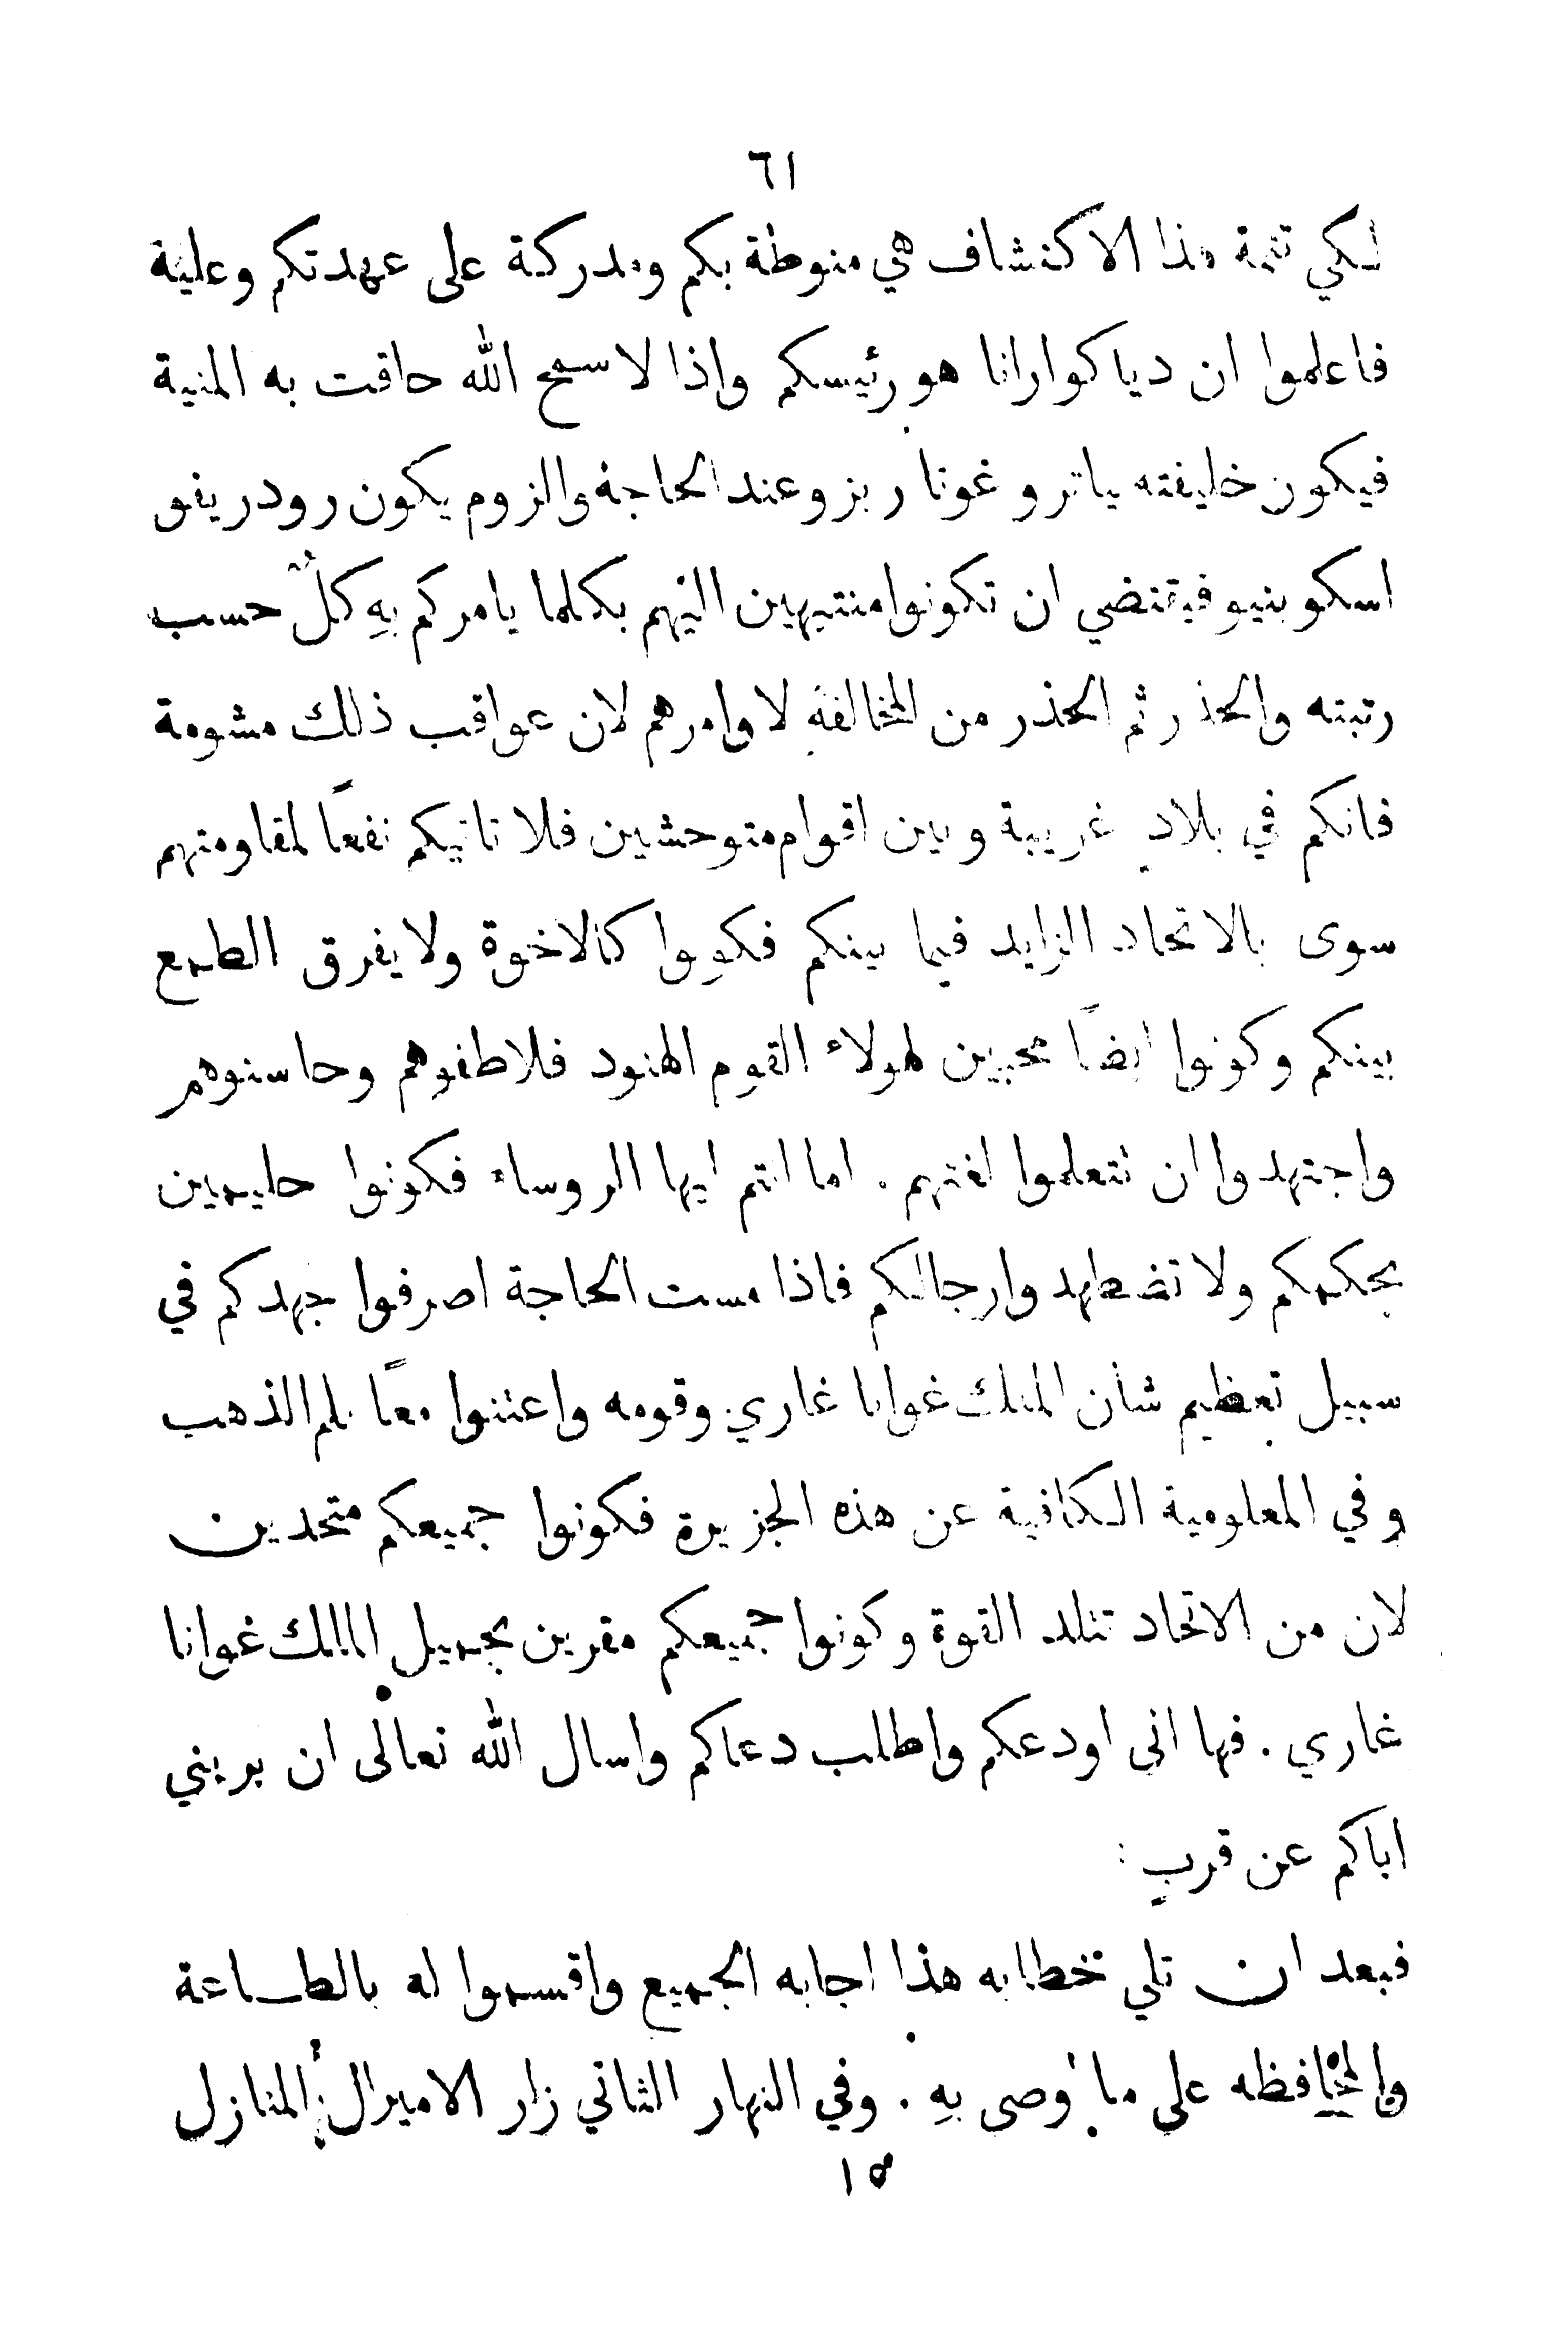 ٦١
لكي تتمة هذا الاكتشاف هي منوطة بكم ومدركة على عهدتكم وعليه
فاعلموا ان دياكوارانا هو رئيسكم واذا لا سمح الله حاقت به المنية
فيكون خليفته ياترو غوتاريز وعند الحاجة والزوم يكون رودريغو
اسكوبنيو فيقتضي ان تكونوا منتبهين اليهم بكلما يامركم بهِ كلٌ حسب
رتبته والحذر ثم الحذر من المخالفة لاوامرهم لان عواقب ذلك مشومة
فانكم في بلادٍ غريبة وبين اقوام متوحشين فلا تاتيكم نفعًا لمقاومتهم
سوى بالاتحاد الزايد فيما بينكم فكونوا كالاخوة ولا يفرق الطمع
بينكم وكونوا ايضًا محبين لهولاء القوم الهنود فلاطفوهم وحاسنوهم
واجتهدوا ان تتعلموا لغتهم . اما انتم ايها الروساء فكونوا حليمين
بحكمكم ولا تضطهدوا رجالكم فاذا مست الحاجة اصرفوا جهدكم في
سبيل تعظيم شأن الملك غوانا غاري وقومه واعتنوا معًا بلم الذهب
وفي المعلومية الكافية عن هذه الجزيرة فكونوا جميعكم متحدين
لان من الاتحاد تتلد القوة وكونوا جميعكم مقرين بجميل الملك غوانا
غاري . فها انى اودعكم واطلب دعاكم واسال الله تعالى ان يريني
اياكم عن قربٍ :
فبعد ان تلي خطابه هذا اجابه الجميع واقسموا له بالطاعة
والمحافظه على ما اوصى بهِ . وفي النهار الثاني زار الاميرال المنازل
١٥